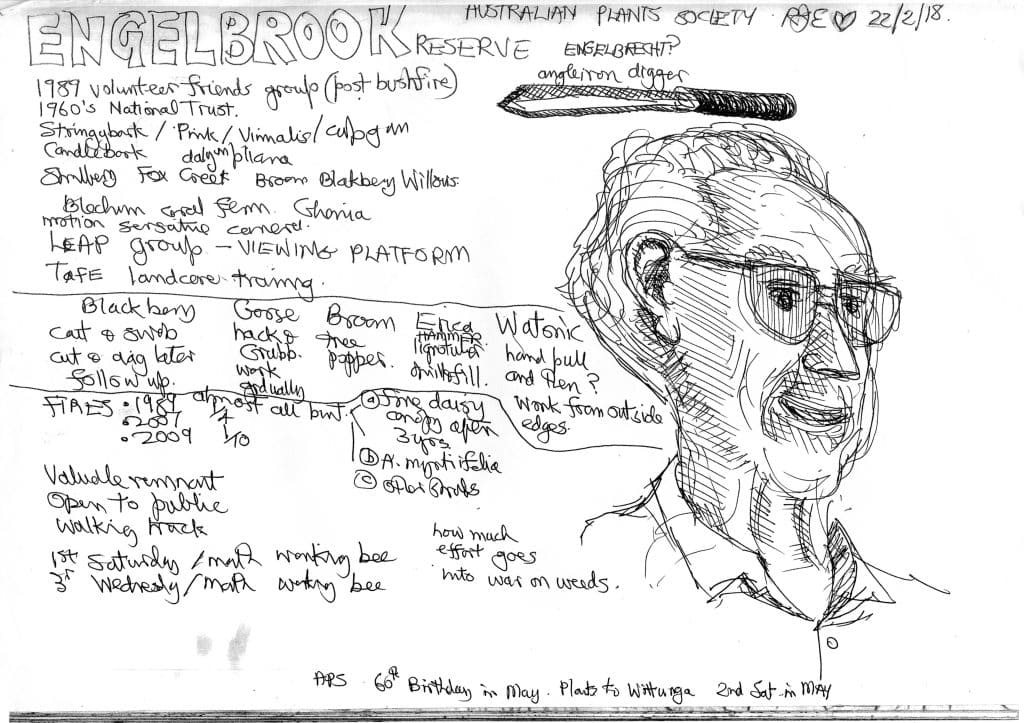 ENGELBROOK RESERVE
AUSTRALIAN PLANTS SOCIETY 22/2/18.
ENGELBRECHT?
angleiron digger
1989 volunteer friends group (post bushfire)
1960's National Trust.
Stringybark / Pink / Viminalis / cupgum
Candlebark dalrympliana
Fox Creek Broom Blakbery Willows.
Blechnum coral fern. Ghania
motion sensative camera.
LEAP group - VIEWING PLATFORM
TAFE landcare training.
Blackbery
cut & swob
cut & dig later
follow up.
Goose
hack &
Grubb.
work
gradually
Broom
tree
popper.
Erica
HAMMER
lignotuber
Watonic
hand pull
and then?
work from outside
edges.
FIRES • 1989 almost all burnt.
• 2007 1/4
• 2009 1/10
(a) daisy
canopy open
3yrs
(b) A. myrtifolia
(c) other
Valuable remnant
Open to public
walking track
1st Saturday / month working bee
3rd Wednesday / month working bee
how much
effort goes
into war on weeds.
APS 60th Birthday in May. Plants to Wittunga 2nd Sat in MAY